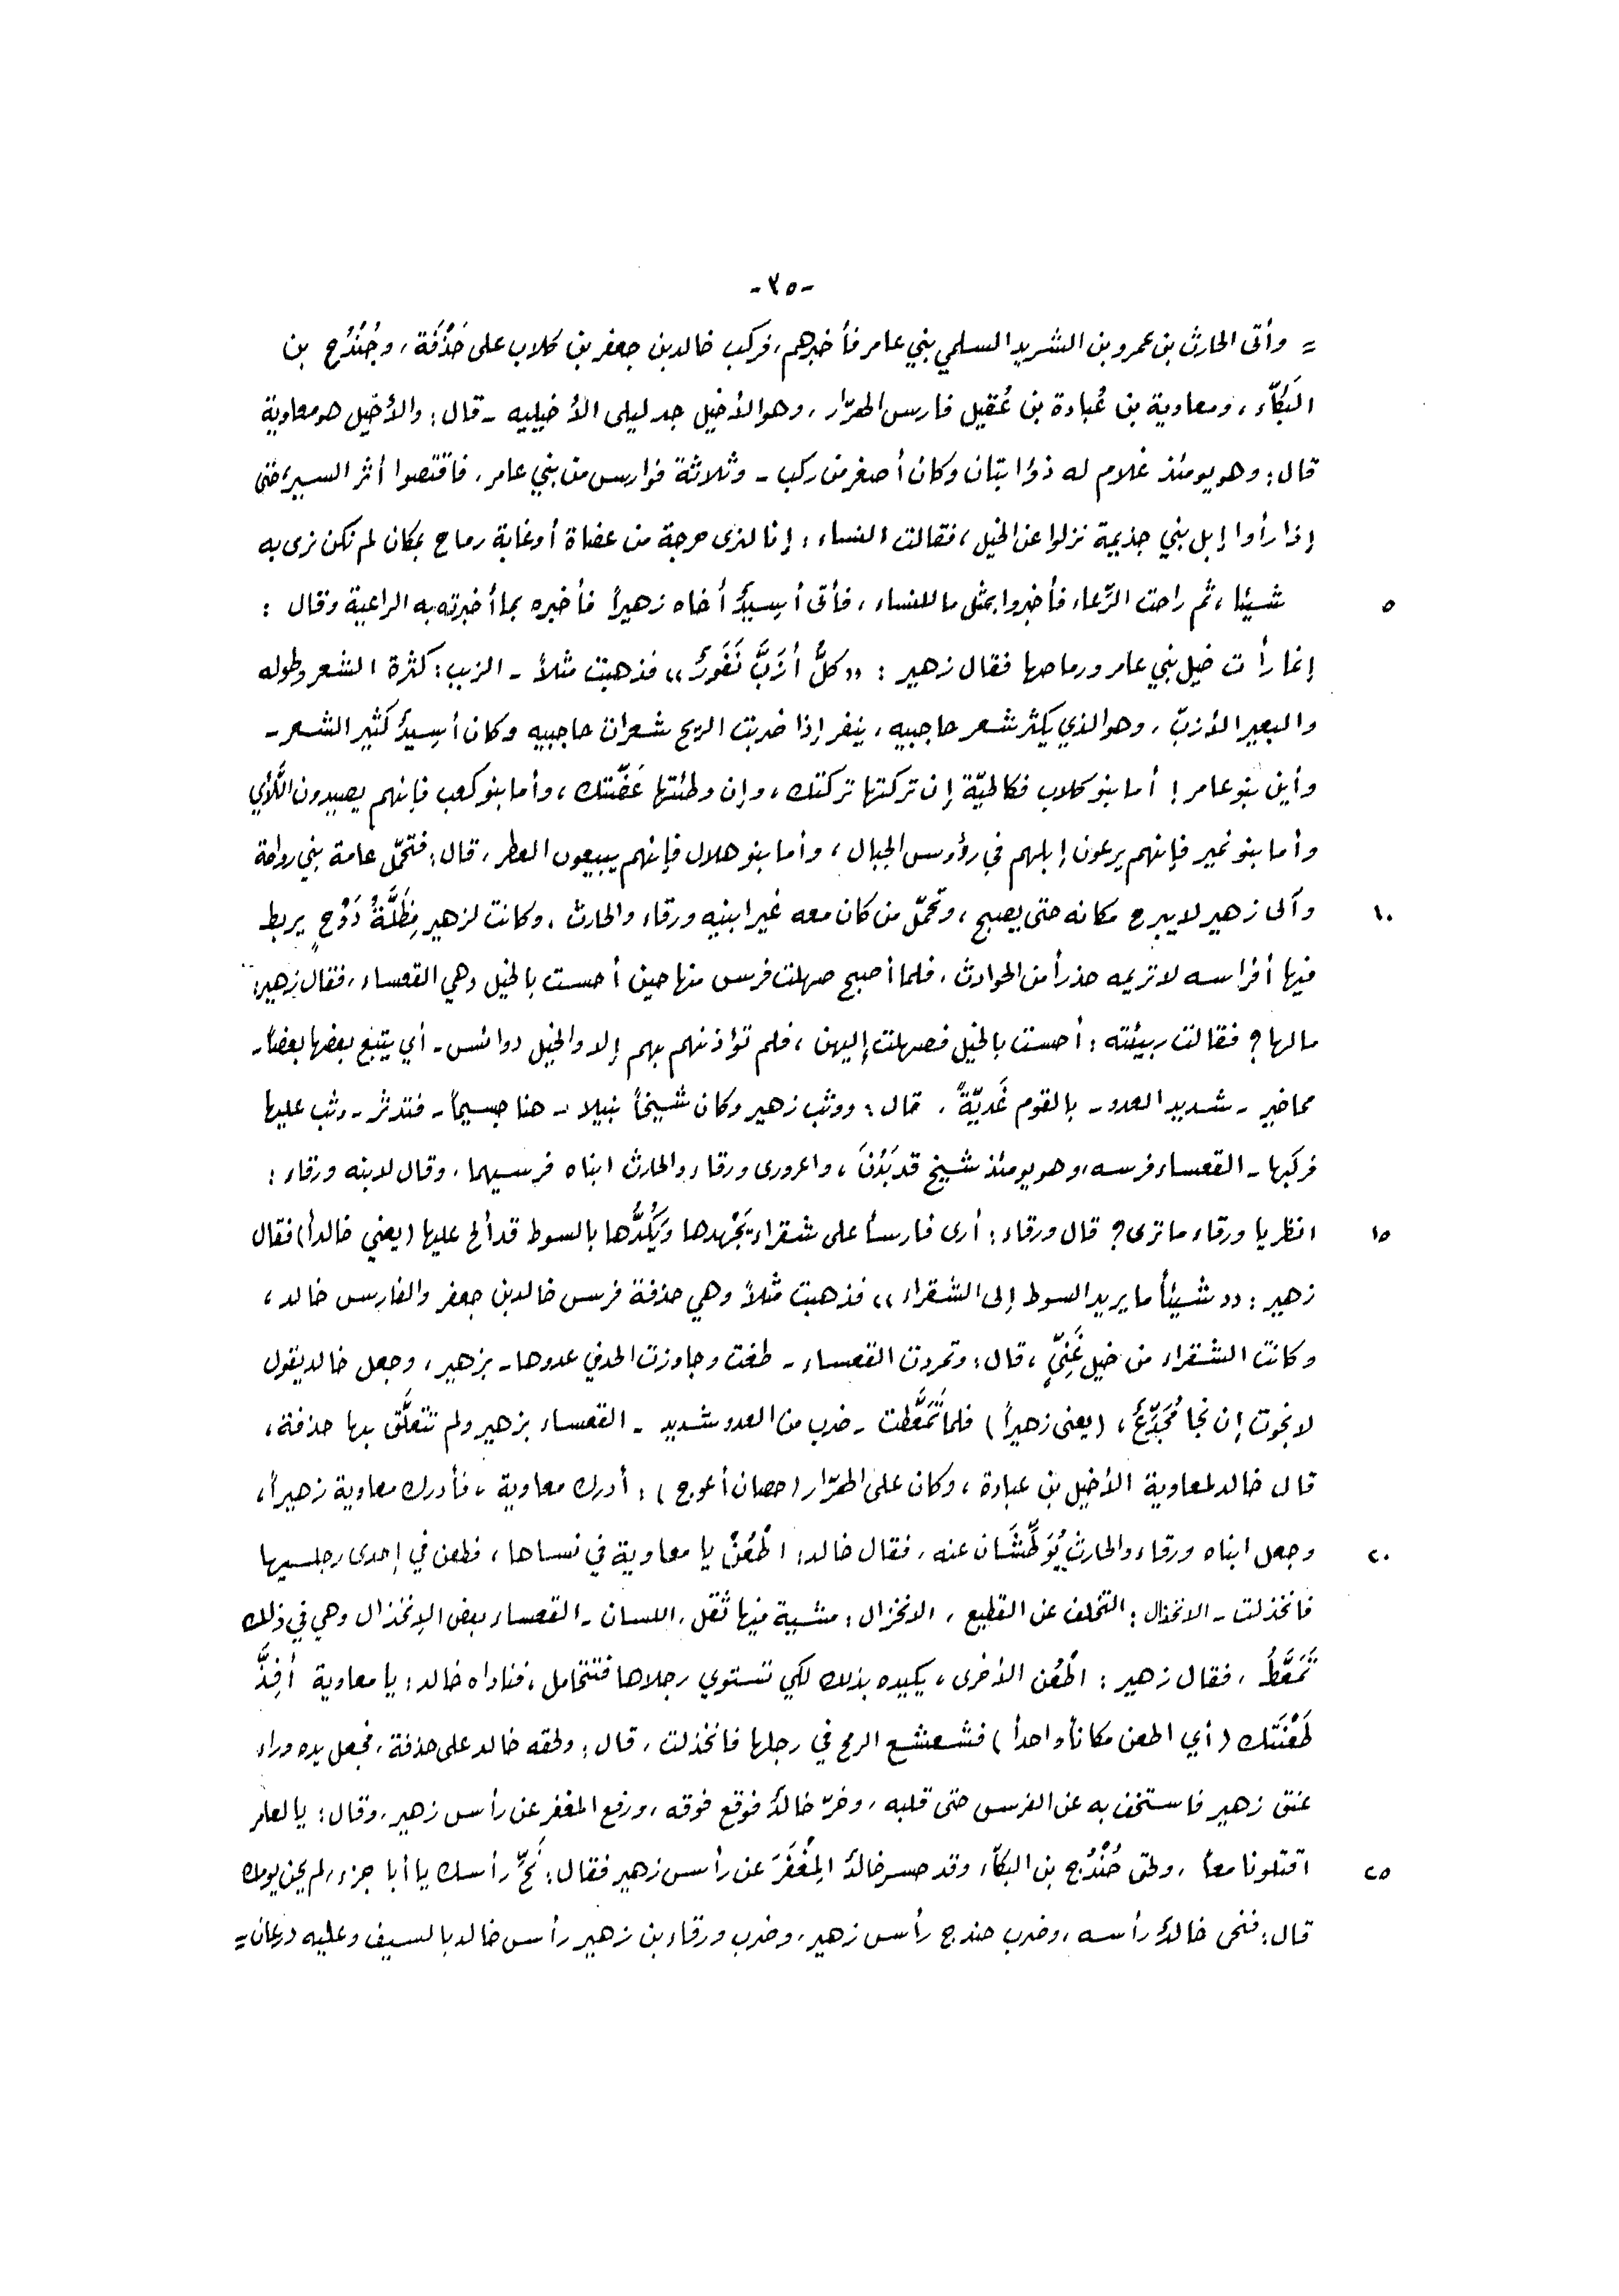 -٣٥-
= وأتى الحارث بن عمرو بن الشريد السلمي بني عامر فأخبرهم، فركب خالد بن جعفر بن كلاب على حَذْفَة، وجُنْدُح بن
البَكَّاء، ومعاوية بن عُبادة بن عُقيل فارس الهرّار، وهو الأخيل جد ليلى الأخيليه - قال: والأخيل هو معاوية
قال: وهو يومئذ غلام له ذؤابتان وكان أصغر من ركب - وثلاثة فوارس من بني عامر، فاقتصوا أثر السير، حتى
إذا رأوا إبل بني جذيمة نزلوا عن الخيل، فقالت النساء: إنا لنرى حرجة من عضاة أو غابة رماح بمكان لم نكن نرى به
٥ شيئا، ثم راحت الرِّعاء فأخبروا بمثل ما للنساء، فأتى أسيدٌ أخاه زهيراً فأخبره بما أخبرته به الراعية وقال:
إنما رأت خيل بني عامر ورماحها فقال زهير: «كلُّ أزَبَّ نَفَورٌ» فذهبت مثلاً - الزبب: كثرة الشعر وطوله
والبعير الأزبّ، وهو الذي يكثر شعر حاجبيه، ينفر إذا ضربت الريح شعرات حاجبيه وكان أسيدٌ كثير الشعر -
وأين بنو عامر! أما بنو كلاب فكالحيّة إن تركتها تركتك، وإن وطئتها عَضَّتك، وأما بنو كعب فإنهم يصيدون اللَّأي
وأما بنو نمير فإنهم يرعون إبلهم في رؤوس الجبال، وأما بنو هلال فإنهم يبيعون العطر، قال: فتحمّل عامة بني رواحة
١٠ وآلى زهير لا يبرح مكانه حتى يصبح، وتحمّل من كان معه غير ابنيه ورقاء والحارث. وكانت لزهير مِظَلَّةُ دَوْحٍ يربط
فيها أفراسه لا تريمه حذراً من الحوادث، فلما أصبح صهلت فرس منها حين أحست بالخيل وهي القعساء، فقال زهير:
ما لها؟ فقالت ربيئته: أحست بالخيل فصهلت إليهن، فلم تؤذنهم بهم إلا والخيل دوائس - أي يتبع بعضها بعضاً -
محاضير - شديد العدو - بالقوم غَديّةً. قال: ووثب زهير وكان شيخاً نبيلا - هنا جسيماً - فتدثر - وثب عليها
فركبها - القعساء فرسه، وهو يومئذ شيخ قد بَدَنَ، واعرورى ورقاء والحارث ابناه فرسيهما، وقال لابنه ورقاء:
١٥ انظر يا ورقاء ما ترى؟ قال ورقاء: أرى فارساً على شقراء يَجْهدها ويَكُدُّها بالسوط قد ألح عليها (يعني خالداً) فقال
زهير: «شيئاً ما يريد السوط إلى الشقراء» فذهبت مثلاً وهي حذفة فرس خالد بن جعفر والفارس خالد،
وكانت الشقراء من خيل غَنِيٍّ، قال: وتمردت القعساء - طغت وجاوزت الحد في عدوها - بزهير، وجعل خالد يقول
لا نجوت إن نجا مُجَدِّعٌ، (يعني زهيراً) فلما تَمَعَّطت - ضرب من العدو شديد - القعساء بزهير ولم تتعلَّق بها حذفة،
قال خالد لمعاوية الأخيل بن عبادة، وكان على الهرّار (حصان أعوج): أدرك معاوية، فأدرك معاوية زهيراً،
٢٠ وجعل ابناه ورقاء والحارث يُوَطِّشَان عنه، فقال خالد: اطْعُنْ يا معاوية في نساها، فطعن في إحدى رجليها
فانخذلت - الانخذال: التخلف عن القطيع، الانخزال: مشية فيها ثقل، اللسان - القعساء بعض الانخذال وهي في ذلك
تَمَعَّطُ، فقال زهير: اطْعُن الأخرى، يكيده بذلك لكي تستوي رجلاها فتتحامل، فناداه خالد: يا معاوية أفِذَّ
طَعْنَتَك (أي اطعن مكاناً واحداً) فشعشع الرمح في رجلها فانخذلت، قال: ولحقه خالد على حذفة، فجعل يده وراء
عنق زهير فاستخف به عن الفرس حتى قلبه، وخرّ خالدٌ فوقع فوقه، ورفع المغفر عن رأس زهير، وقال: يا لعامر
٢٥ اقتلونا معاً، ولحق حُنْدُج بن البكّاء وقد حسر خالدٌ المِغْفَرَ عن رأس زهير فقال: نَحِّ رأسك يا أبا جزء، لم يحن يومك
قال: فنحى خالدٌ رأسه، وضرب حندج رأس زهير، وضرب ورقاء بن زهير رأس خالد بالسيف وعليه درعان =